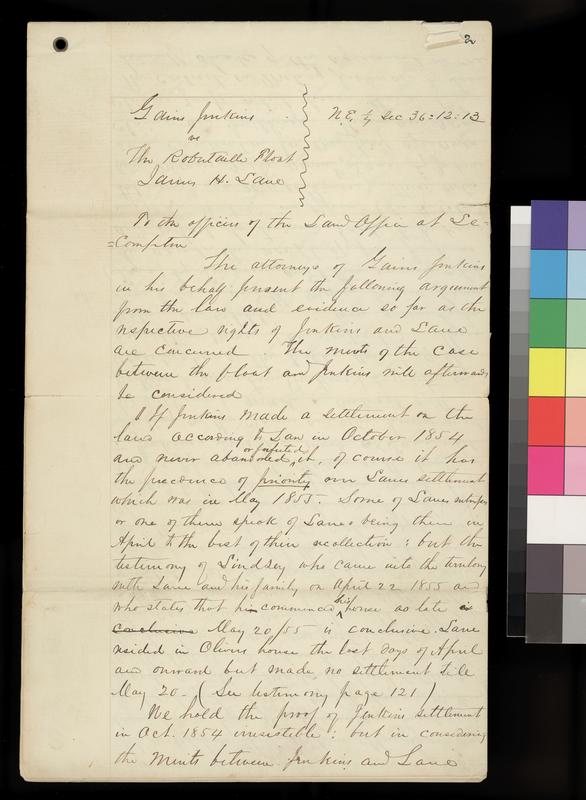 2
Gains Jenkins
N.E. ¼ Sec 36:12:13
vs
The Robataille Float
James H. Lane
To the officers of the Land Office at Le-
=Compton
The attorneys of Gains Jenkins
in his behalf present the following argument
from the law and evidence so far as the
respective rights of Jenkins and Lane
are concerned. The merits of the case
between the float and Jenkins will afterwards
be considered
If Jenkins made a settlement on the
land according to Law in October 1854
and never abandoned or forfeited it, of course it has
the precedence of priority over Lanes settlement
which was in May 1855. Some of Lanes witnesses
or one of them speak of Lanes being there in
April to the best of their recollection: but the
testimony of Lindsey who came into the territory
with Lane and his family on April 22 1855 and
who states that he commenced his house as late as
May 20/55 is conclusive. Lane
resided in Olivers house the last days of April
and onward but made no settlement till
May 20 - (See testimony page 121)
We hold the proof of Jenkins settlement
in Oct. 1854 irresistible: but in considering
the merits between Jenkins and Lane